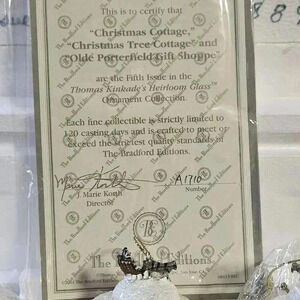 This is to certify that
"Christmas Cottage,"
"Christmas Tree Cottage" and
"Olde Porterfield Gift Shoppe"
are the Fifth Issue in the
Thomas Kinkade's Heirloom Glass
Ornament Collection.
Each fine collectible is strictly limited to
120 casting days and is crafted to meet or
exceed the strictest quality standards of
The Bradford Editions.
A1710
J. Marie Korth
Director
Number
The Bradford Editions